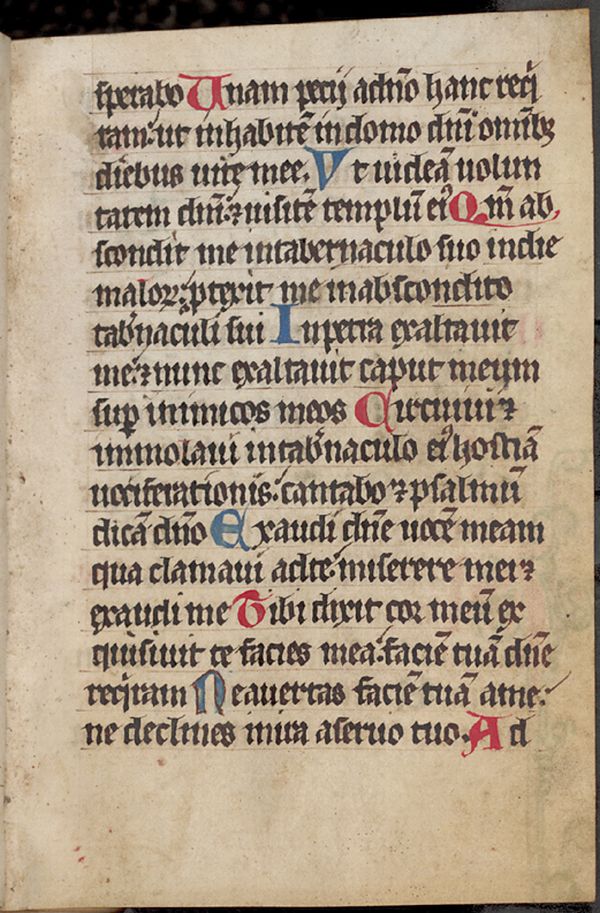 sperabo Unam pecij adn̄o hanc req̇
ram: ut inhabitē in domo dn̄i omĩbꝫ
diebus uitę mee. Ut uideā uolun
tatem dn̄i: ⁊ uisitē templū eiꝰ Qm̄ ab,
scondit me intabernaculo suo indie
maloꝝ: ꝓtexit me inabscondito
tab̾naculi sui In petra exaltauit
me: ⁊ nunc exaltauit caput meum
suꝑ inimicos meos Circuiui ⁊
immolaui intab̾naculo eiꝰ hostiā
uociferationis: cantabo ⁊ psalmū
dicā dn̄o Exaudi dn̄e uocē meam
qua clamaui adte: miserere mei ⁊
exaudi me Tibi dixit cor meū ex
quisiuit te facies mea: faciē tuā dn̄e
req̇ram Ne auertas faciē tuā ame:
ne declines inira aseruo tuo. Ad